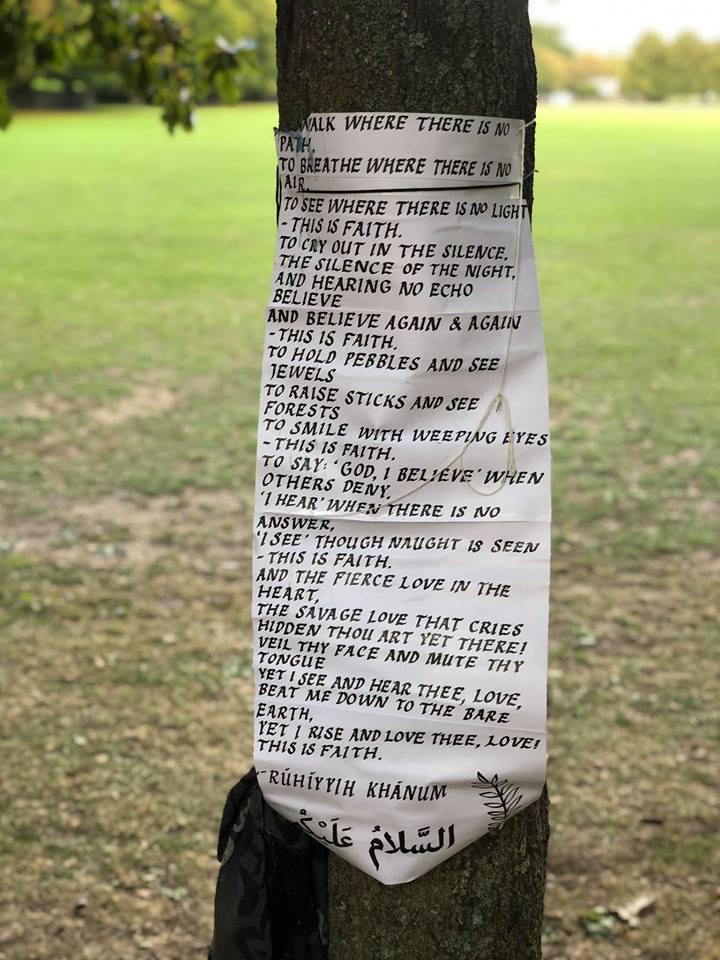 WALK WHERE THERE IS NO
PATH,
TO BREATHE WHERE THERE IS NO
AIR,
TO SEE WHERE THERE IS NO LIGHT
- THIS IS FAITH.
TO CRY OUT IN THE SILENCE,
THE SILENCE OF THE NIGHT,
AND HEARING NO ECHO
BELIEVE
AND BELIEVE AGAIN & AGAIN
- THIS IS FAITH.
TO HOLD PEBBLES AND SEE
JEWELS
TO RAISE STICKS AND SEE
FORESTS
TO SMILE WITH WEEPING EYES
- THIS IS FAITH.
TO SAY: 'GOD, I BELIEVE' WHEN
OTHERS DENY,
'I HEAR' WHEN THERE IS NO
ANSWER,
'I SEE' THOUGH NAUGHT IS SEEN
- THIS IS FAITH.
AND THE FIERCE LOVE IN THE
HEART,
THE SAVAGE LOVE THAT CRIES
HIDDEN THOU ART YET THERE!
VEIL THY FACE AND MUTE THY
TONGUE
YET I SEE AND HEAR THEE, LOVE,
BEAT ME DOWN TO THE BARE
EARTH,
YET I RISE AND LOVE THEE, LOVE!
THIS IS FAITH.
- RÚHÍYYIH KHÁNUM
السَّلَامُ